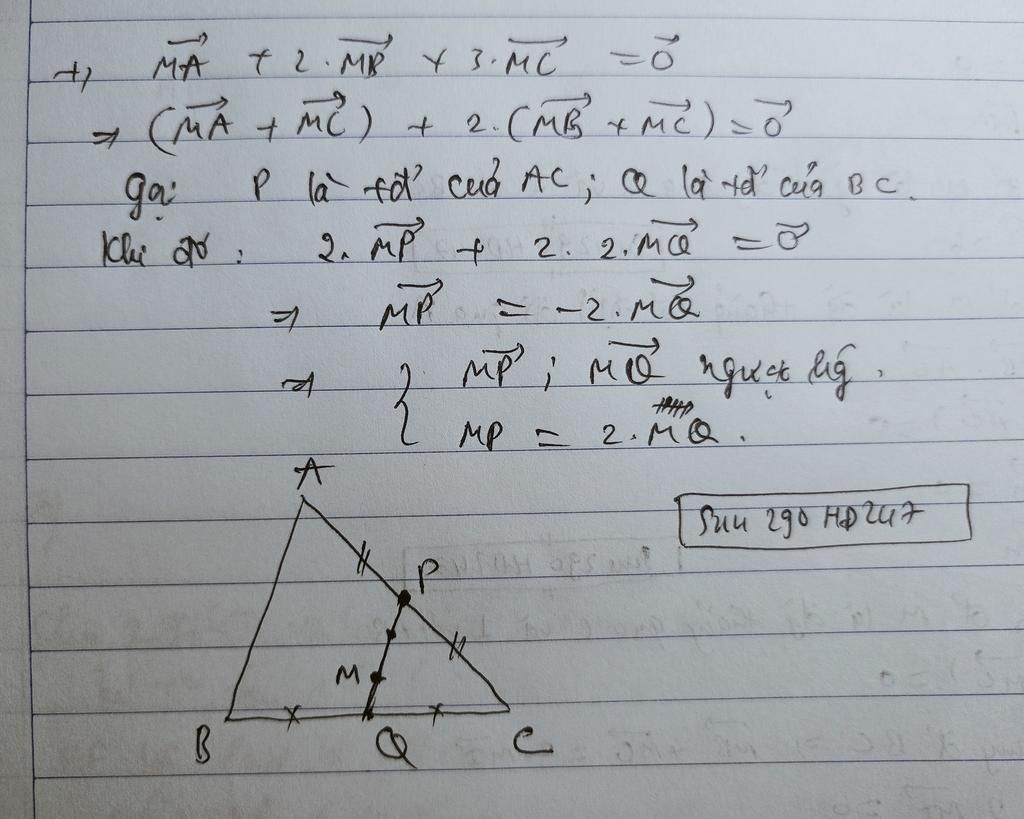 +, MA⃗ + 2. MB⃗ + 3. MC⃗ = 0⃗
⇒ (MA⃗ + MC⃗) + 2. (MB⃗ + MC⃗) = 0⃗
Gọi P là tđ' của AC; Q là tđ' của BC.
Khi đó: 2. MP⃗ + 2. 2. MQ⃗ = 0⃗
⇒ MP⃗ = -2. MQ⃗
⇒ { MP⃗ ; MQ⃗ ngược hg.
MP = 2. MQ.
A
290 HD247
P
M
B Q C